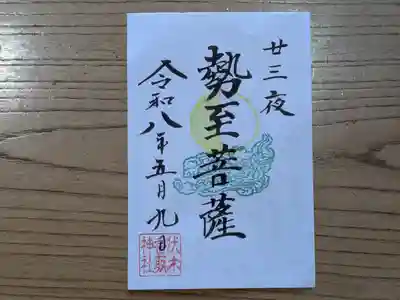 廿三夜
勢至菩薩
令和八年五月九日
伏木
香取
神社